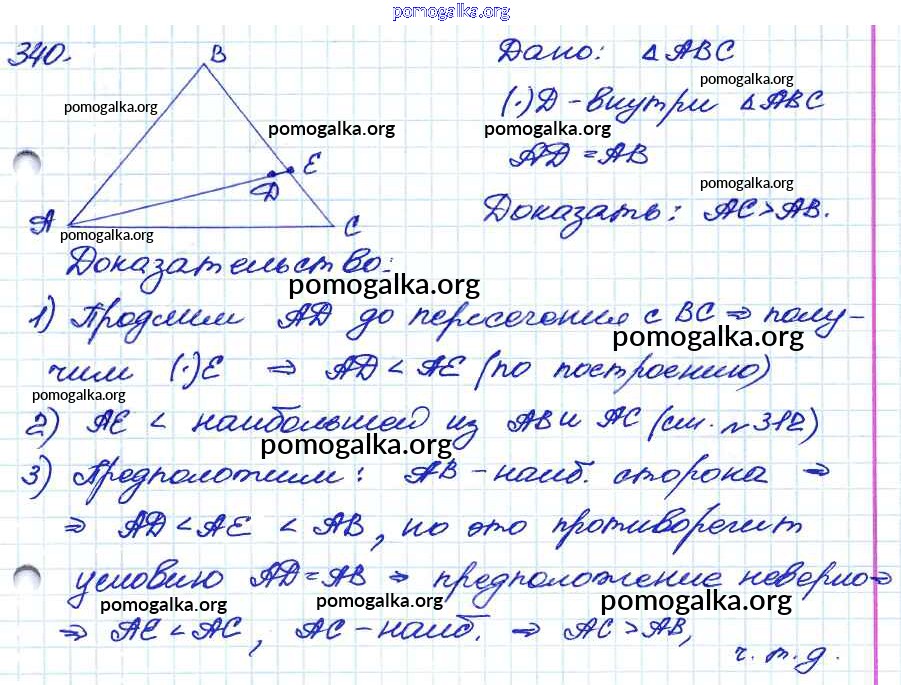 pomogalka.org
340.
B
Дано: △ABC
pomogalka.org
pomogalka.org
(·)D - внутри △ABC
pomogalka.org
pomogalka.org
E
AD = AB
D
pomogalka.org
A
C
Доказать: AC > AB.
pomogalka.org
Доказательство:
pomogalka.org
1) Продлим AD до пересечения с BC ⇒ полу-
pomogalka.org
чим (·)E ⇒ AD < AE (по построению)
pomogalka.org
2) AE < наибольшей из AB и AC (см. №312)
pomogalka.org
3) Предположим: AB - наиб. сторона ⇒
⇒ AD < AE < AB, но это противоречит
условию AD = AB ⇒ предположение неверно ⇒
pomogalka.org
pomogalka.org
pomogalka.org
⇒ AE < AC, AC - наиб. ⇒ AC > AB,
ч.т.д.